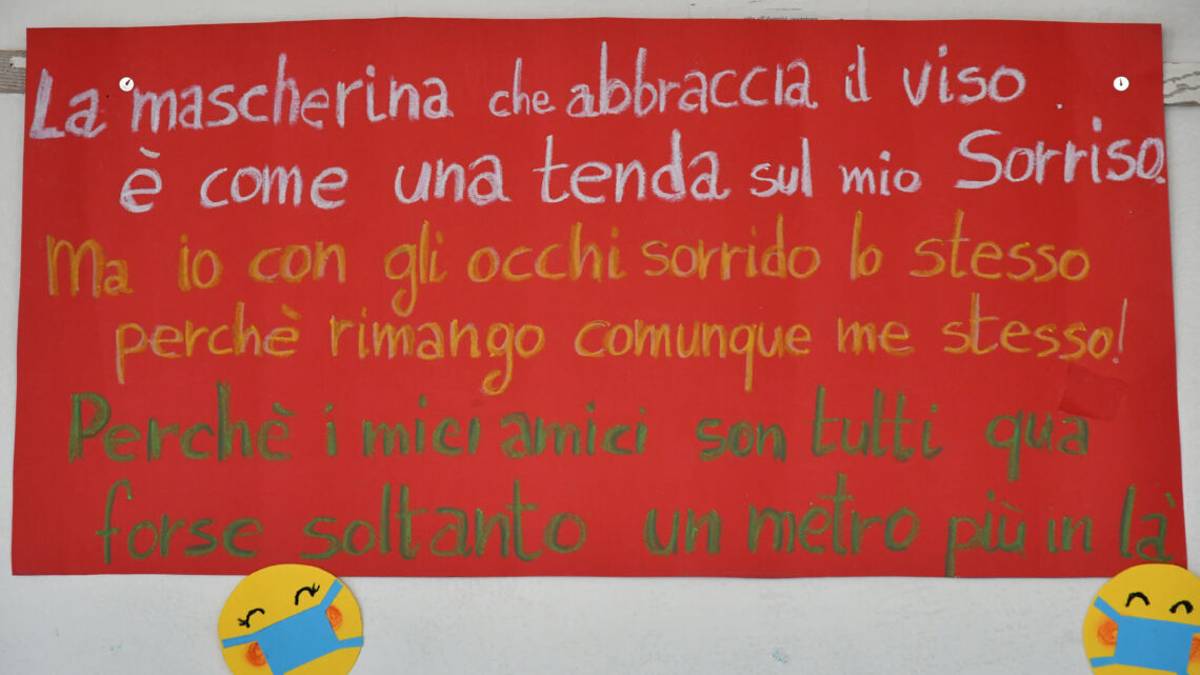 La mascherina che abbraccia il viso.
è come una tenda sul mio Sorriso.
Ma io con gli occhi sorrido lo stesso
perchè rimango comunque me stesso!
Perchè i miei amici son tutti qua
forse soltanto un metro più in là